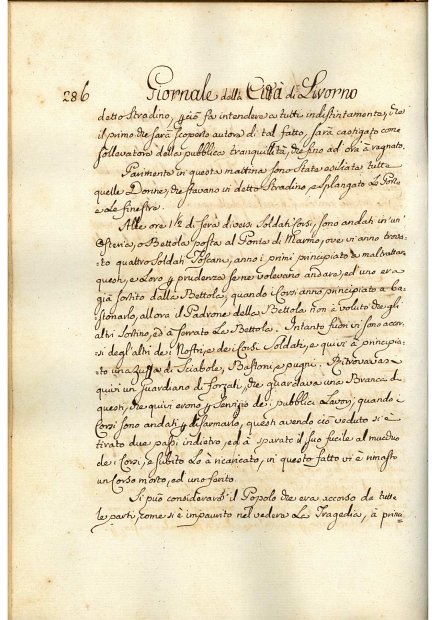 286 Giornale della Città di Livorno
detto Stradino, e ciò fa intendere a tutti indistintamente, che
il primo che sarà scoperto autore di tal fatto, sarà castigato come
sollevatore della pubblica tranquillità, che fino ad ora à regnato.
Parimente in questa mattina sono State esiliate tutte
quelle Donne, che stavano in detto Stradino, e Le Porte
e Le finestre.
Alle ore 1½ di sera diversi Soldati Corsi, sono andati in un'
Osteria, o Bettola posta al Ponte di Marmo, ove vi anno trova-
to quattro Soldati Toscani, anno i primi principiato a maltrattar
questi, e Loro p prudenza se ne volevano andare, ed uno era
già sortito dalla Bettola, quando i Corsi anno principiato a ba-
stonarlo, allora il Padrone della Bettola non à voluto che gli
altri Sortino, ed à serrato La Bettola. Intanto fuori vi sono accor-
si degl'altri de i Nostri, e de i Corsi Soldati, e quivi à principia-
to una Zuffa di Sciabole, Bastoni, e pugni. Ritrovavasi
quivi un Guardiano di Forzati, che guardava una Branca di
questi, che quivi erono p Servizio de i pubblici Lavori, quando i
Corsi sono andati p disarmarlo, questi avendo ciò veduto si è
tirato due passi indietro, ed à sparato il suo fucile al mucchio
de i Corsi, e subito Lo à ricaricato, in questo fatto vi è rimasto
un Corso morto, ed uno ferito.
Si può considerare il Popolo che era accorso da tutte
le parti, come si è impaurito nel vedere La Tragedia, à prin-